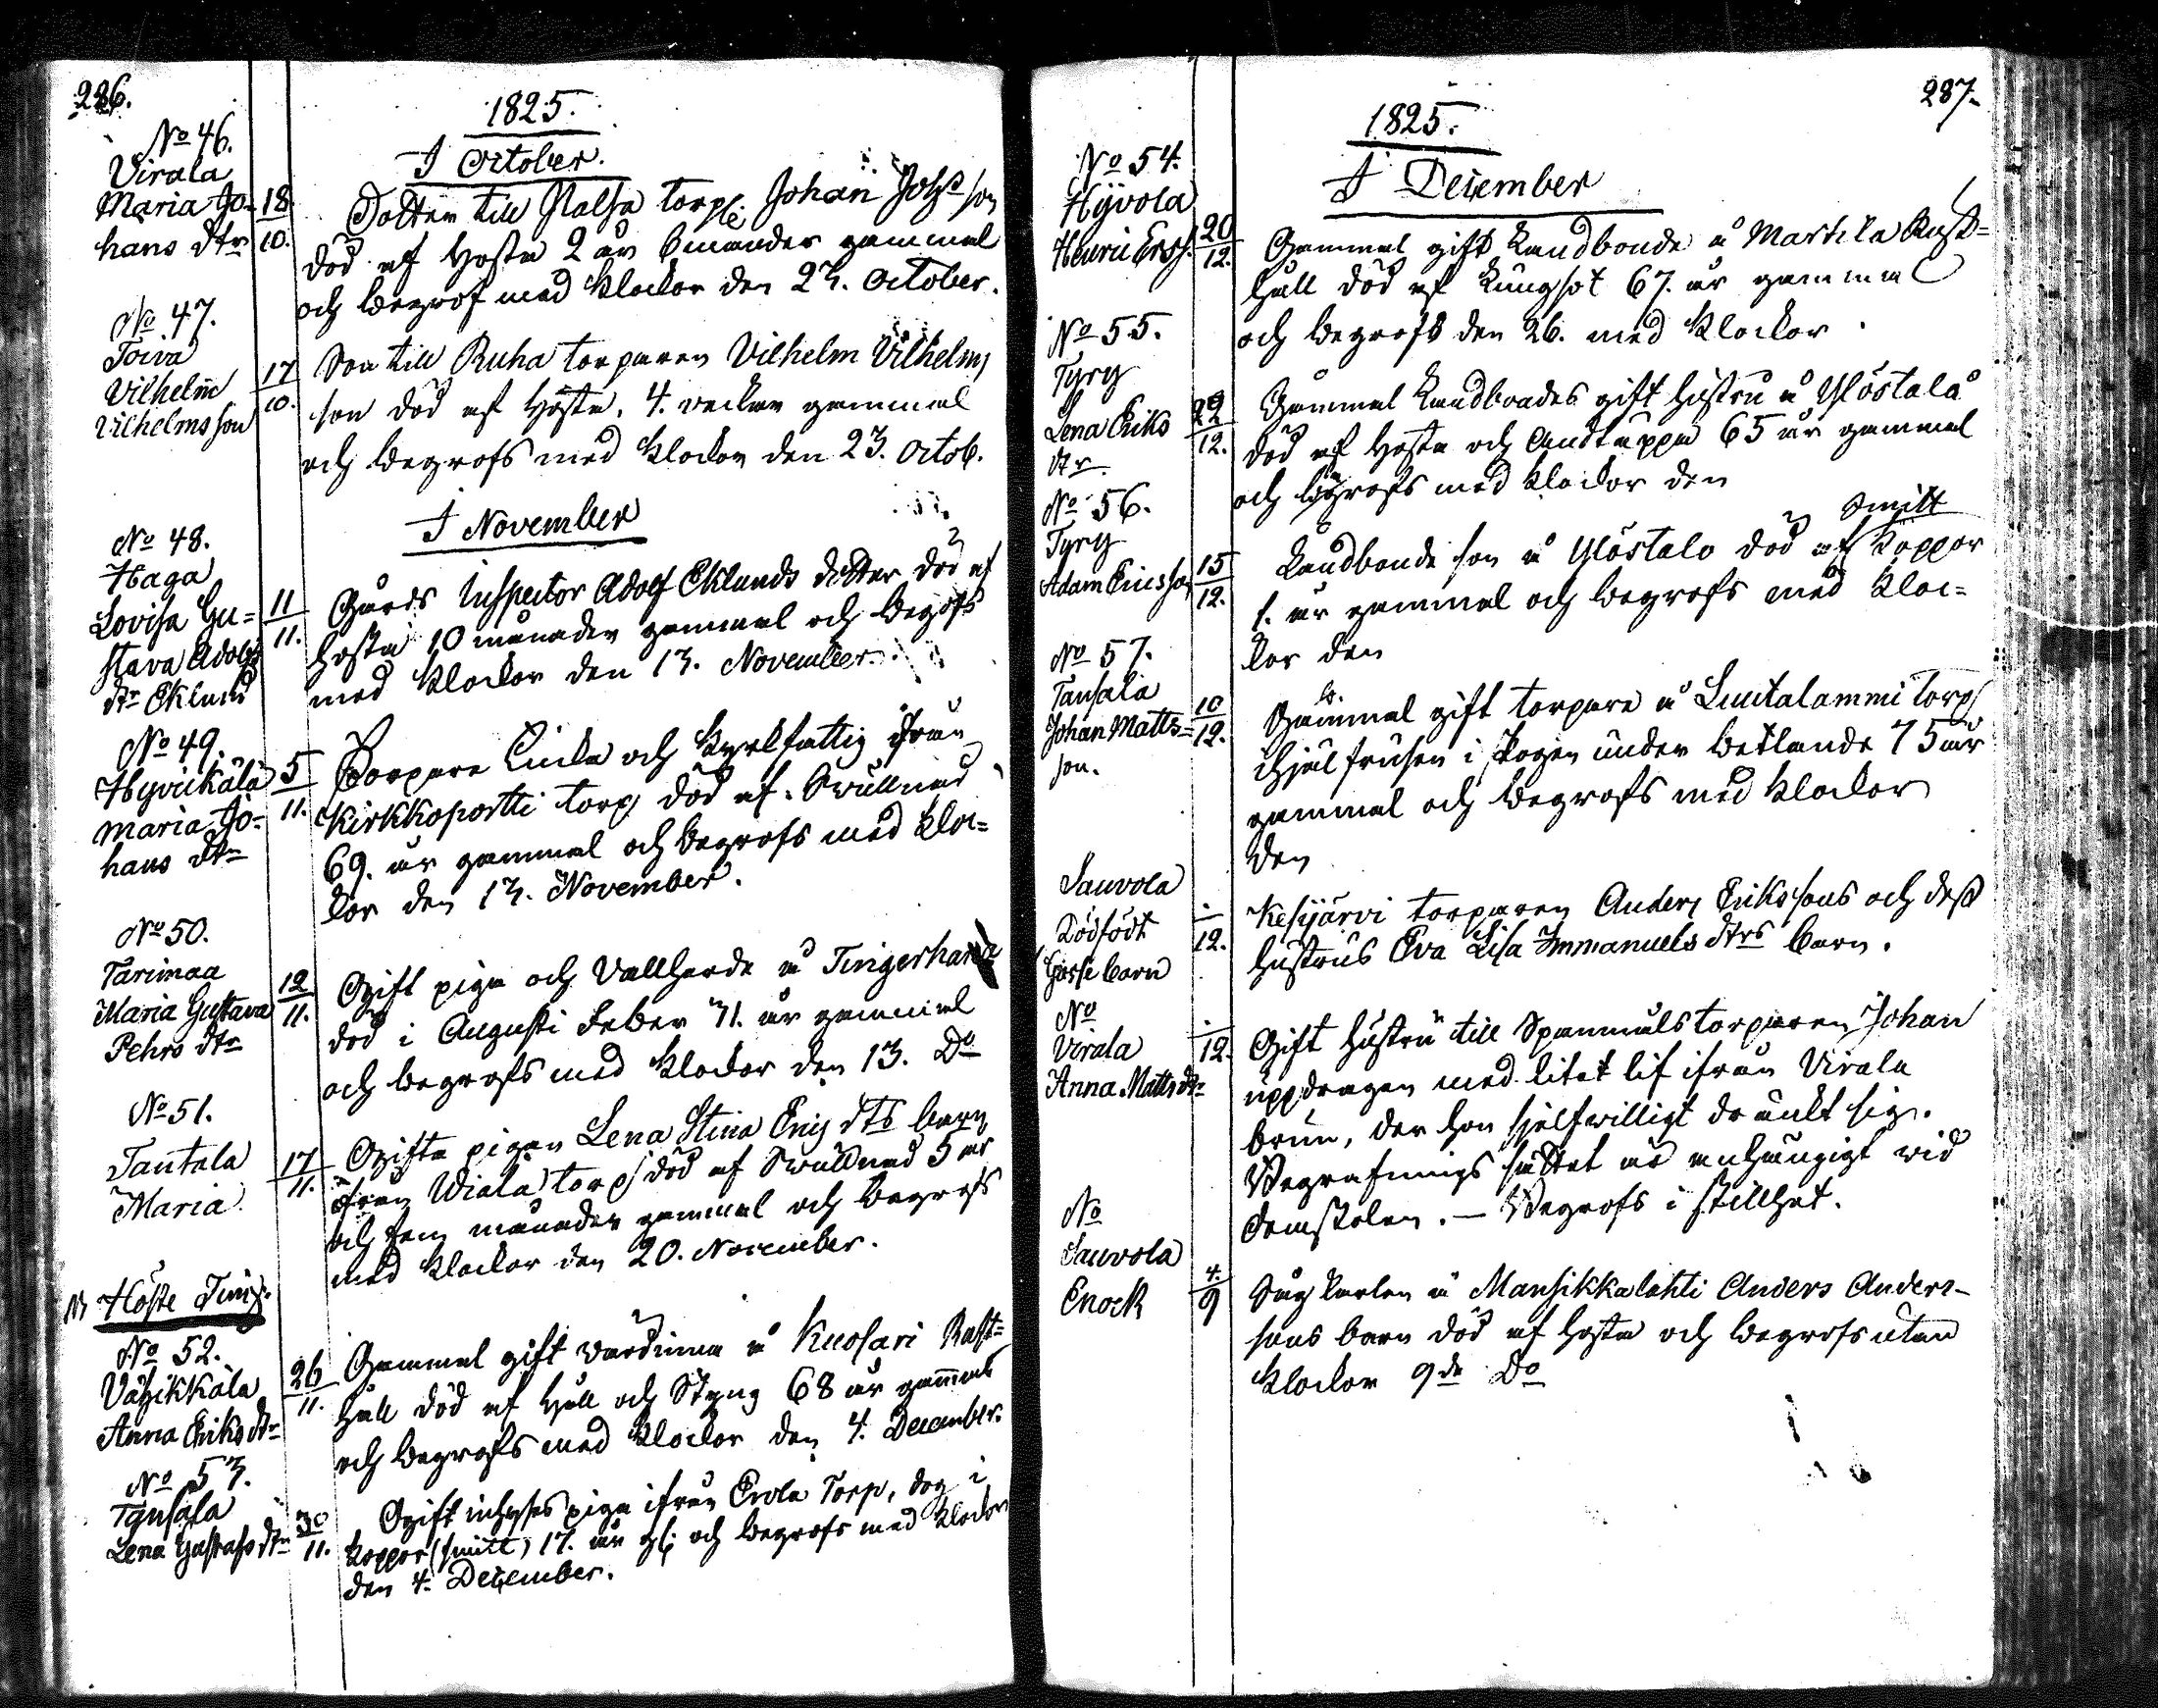 286.
1825.
I October.
No 46.
Virala
Maria Jo-
hans dtr
18
10.
Dotter till Nalfa torp: Johan Johs son
död af Hosta 2 år 6 månader gammal
och begrof med klockor den 23. October.
No 47.
Toiva
Vilhelm
Vilhelmsson
17
10.
Son till Ruha torparen Vilhelm Vilhelms
son död af Hosta, 4. veckor gammal
och begrofs med klockor den 23. Octob.
I November
No 48.
Haga
Lovisa Gu-
stava Adolfs
dtr Eklund
11
11.
Gårds Inspector Adolf Eklunds dotter död af
Hosta 10 månader gammal och begrofs
med klockor den 13. November.
No 49.
Hyvikälä
Maria Jo-
hans dtr
5
11.
Torpare Enka och kyrkfattig från
Kirkkoportti torp död af Svullnad
69. år gammal och begrofs med kloc-
kor den 13. November.
No 50.
Tarimaa
Maria Gustava
Pehrs dtr
12
11.
Ogift piga och Vallherde å
död i Augusti Feber 71. år gammal
och begrofs med klockor den 13. Do
No 51.
Tantala
Maria
17
11.
Ogifta pigan Lena Stina Erics dts barn
från Wiala torp död af Svullnad 5 år
och fem månader gammal och begrofs
med klockor den 20. November.
Höste Ting.
No 52.
Vähikkälä
Anna Eriks dtr
26
11.
Gammal gift värdinna å Kuosari Rust-
håll död af Håll och Styng 68 år gammal
och begrofs med klockor den 4. December.
No 53.
Tansala
Lena Gustafs dtr
30
11.
Ogift inhyses piga ifrån Erola Torp, dog i
koppor (smitt) 17. år gl: och begrofs med klockor
den 4. December.
287.
1825.
I December
No 54.
Hyvola
Henric Erss:
20
12.
Gammal gift Landbonde å Martila Rust-
håll död af Lungsot 67. år gammal
och begrofs den 26. med klockor.
No 55.
Tyry
Lena Eriks
dtr
29
12.
Gammal Landbondes gift hustru å Ylöstalo
död af Hosta och Andtäppa 65 år gammal
och begrofs med klockor den
No 56.
Tyry
Adam Ericsson
15
12.
smitt
Landbonde son å Ylöstalo död af koppor
1. år gammal och begrofs med kloc-
kor den
No 57.
Tansala
Johan Matts-
son.
10
12.
Gammal gift torpare å Luutalammi torp
ihjälfrusen i skogen under Betlande 75 år
gammal och begrofs med klockor
den
Sauvola
Dödfödt
Gosse barn
12.
Kesijärvi torparen Anders Erikssons och dess
hustrus Eva Lisa Immanuels dtrs barn.
No
Virala
Anna Matts dtr
12.
Gift hustru till Spannmåls torparen Johan
uppdragen med litet lif ifrån Virala
brun, der hon sjelfwilligt dränkt sig.
Begrafnings sättet är anhängigt vid
Domstolen. — Begrofs i stillhet.
No
Sauvola
Enock
4.
9
Såg karlen å Mansikkalahti Anders Anders-
sons barn död af hosta och begrofs utan
klockor 9de Do